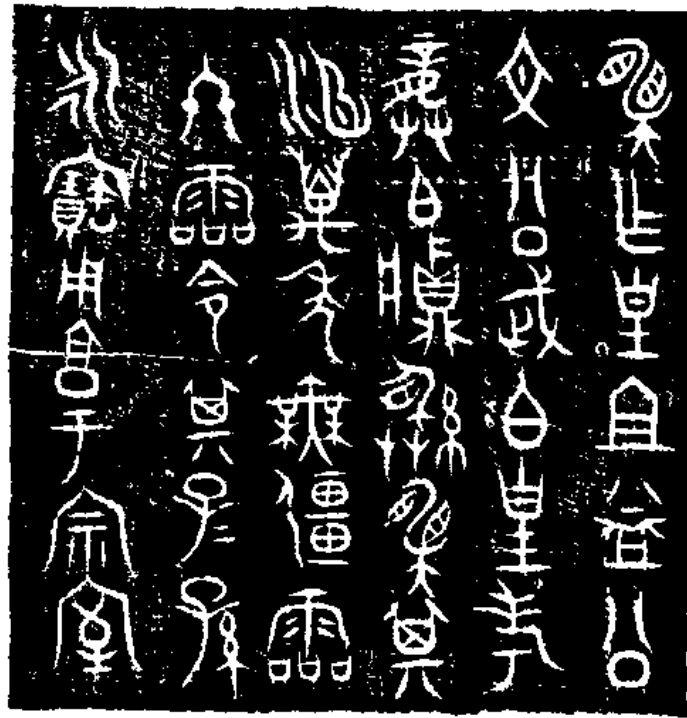 乍皇且益公
文公武白皇考
龏白䵼彝其
洍萬年無彊霝
冬霝令其子=孫
永寶用亯于宗室